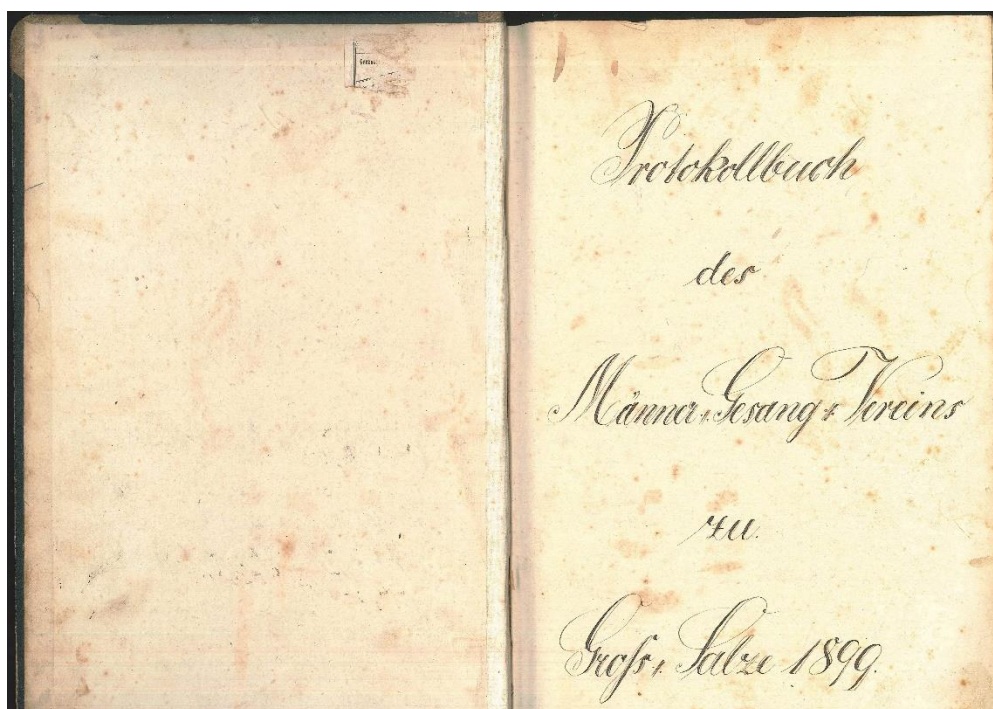 Protokollbuch
des
Männer-Gesang-Vereins
zu
Gross-Salze 1899.